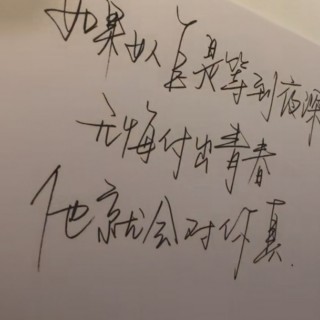 如果女人总是等到夜深
无悔付出青春
他就会对你真